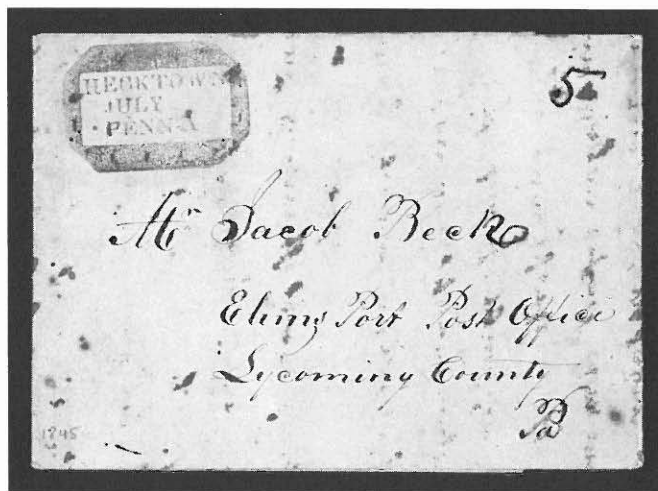 HECKTOWN
JULY
PENNA
5
Mr Jacob Beck
Elimsport Post Office
Lycoming County
Pa
1845